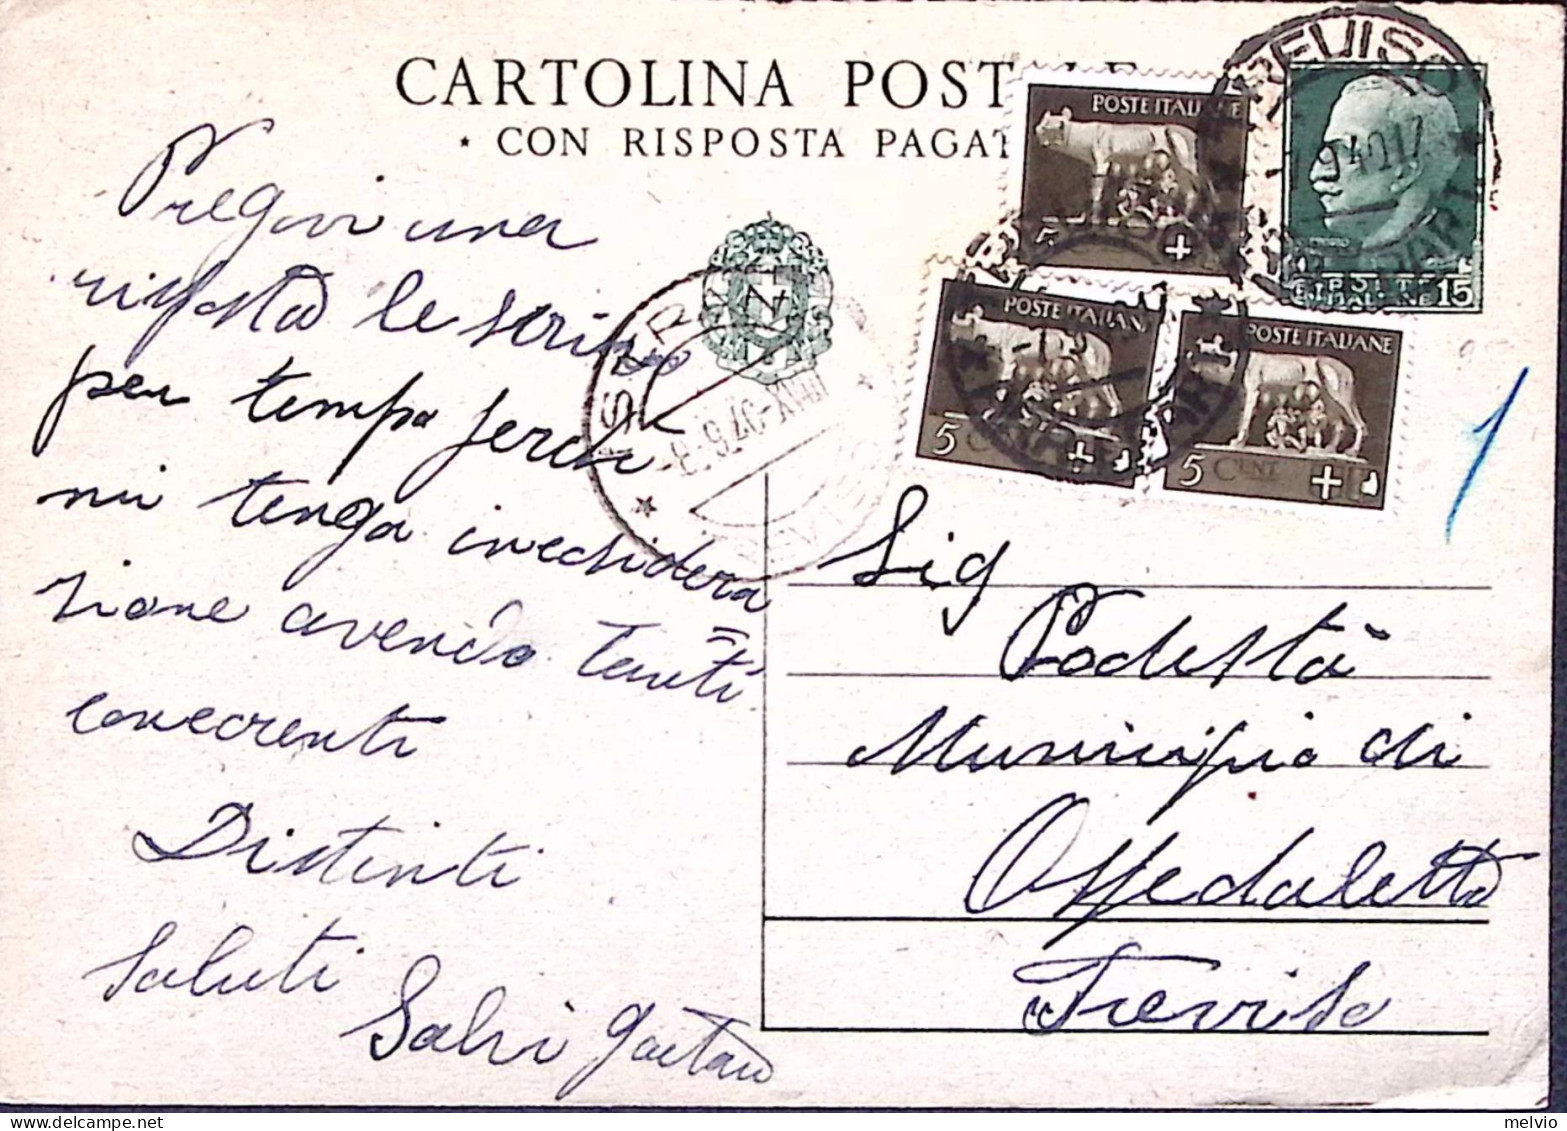 CARTOLINA POST
CON RISPOSTA PAGAT
POSTE ITALIANE
5
POSTE ITALIANE
5 CENT
POSTE ITALIANE
5 CENT
15
TREVISO
Pregovi una
risposta le scrissi
per tempo ferch
mi tenga in considera
zione avendo tanti
concorrenti
Distinti
saluti
Salvi Gaetano
Sig
Podestà
Municipio di
Ospedaletto
Treviso
melvio